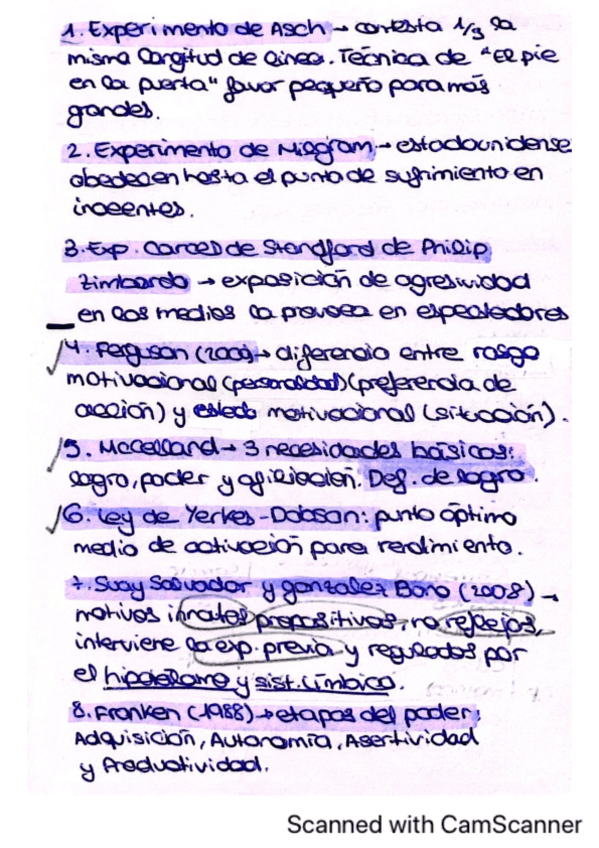 1. Experimento de Asch → contesta 1/3 la
misma longitud de línea. Técnica de "El pie
en la puerta" favor pequeño para más
grandes.
2. Experimento de Milgram → estadounidense
obedecen hasta el punto de sufrimiento en
inocentes.
3. Exp. Carcel de Standford de Philip
Zimbardo → exposición de agresividad
en los medios la provoca en espectadores
4. Ferguson (2000) → diferencia entre rasgo
motivacional (personalidad) (preferencia de
acción) y estado motivacional (situación).
5. McClelland → 3 necesidades básicas:
logro, poder y afiliación. Def. de logro.
6. Ley de Yerkes-Dobson: punto óptimo
medio de activación para rendimiento.
7. Suay Salvador y González Bono (2008) →
motivos innatos propositivos, no reflejos,
interviene la exp. previa y regulados por
el hipotálamo y sist. límbico.
8. Franken (1988) → etapas del poder:
Adquisición, Autonomía, Asertividad
y Productividad.
Scanned with CamScanner